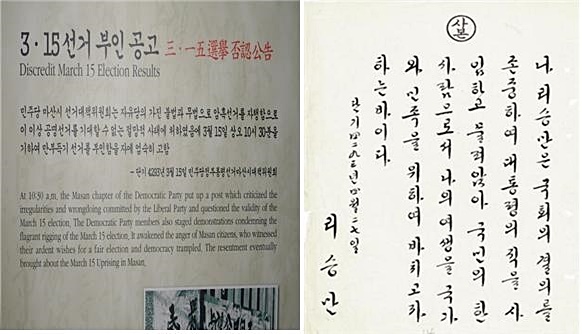 3·15 선거 부인 공고 三·一五選擧否認公告
Discredit March 15 Election Results
민주당 마산시 선거대책위원회는 자유당의 가진 불법과 무법으로 암흑선거를 자행함으로
이 이상 공명선거를 기대할 수 없는 절망적 사태에 처하였음에 3월 15일 상오 10시 30분을
기하여 만부득이 선거를 부인함을 자에 엄숙히 고함
- 단기 4293년 3월 15일 민주당정부통령선거마산시대책위원회
At 10:30 a.m, the Masan chapter of the Democratic Party put up a post which criticized the
irregularities and wrongdoing committed by the Liberal Party and questioned the validity of the
March 15 election. The Democratic Party members also staged demonstrations condemning the
flagrant rigging of the March 15 election. It awakened the anger of Masan citizens, who witnessed
their ardent wishes for a fair election and democracy trampled. The resentment eventually
brought about the March 15 Uprising in Masan.
사본
나 리승만은 국회의 결의를
존중하여 대통령의 직을 사
임하고 물러앉아 국민의 한
사람으로서 나의 여생을 국가
와 민족을 위하여 바치고자
하는 바이다.
단기 四二九三년 四월 二七일
리승만